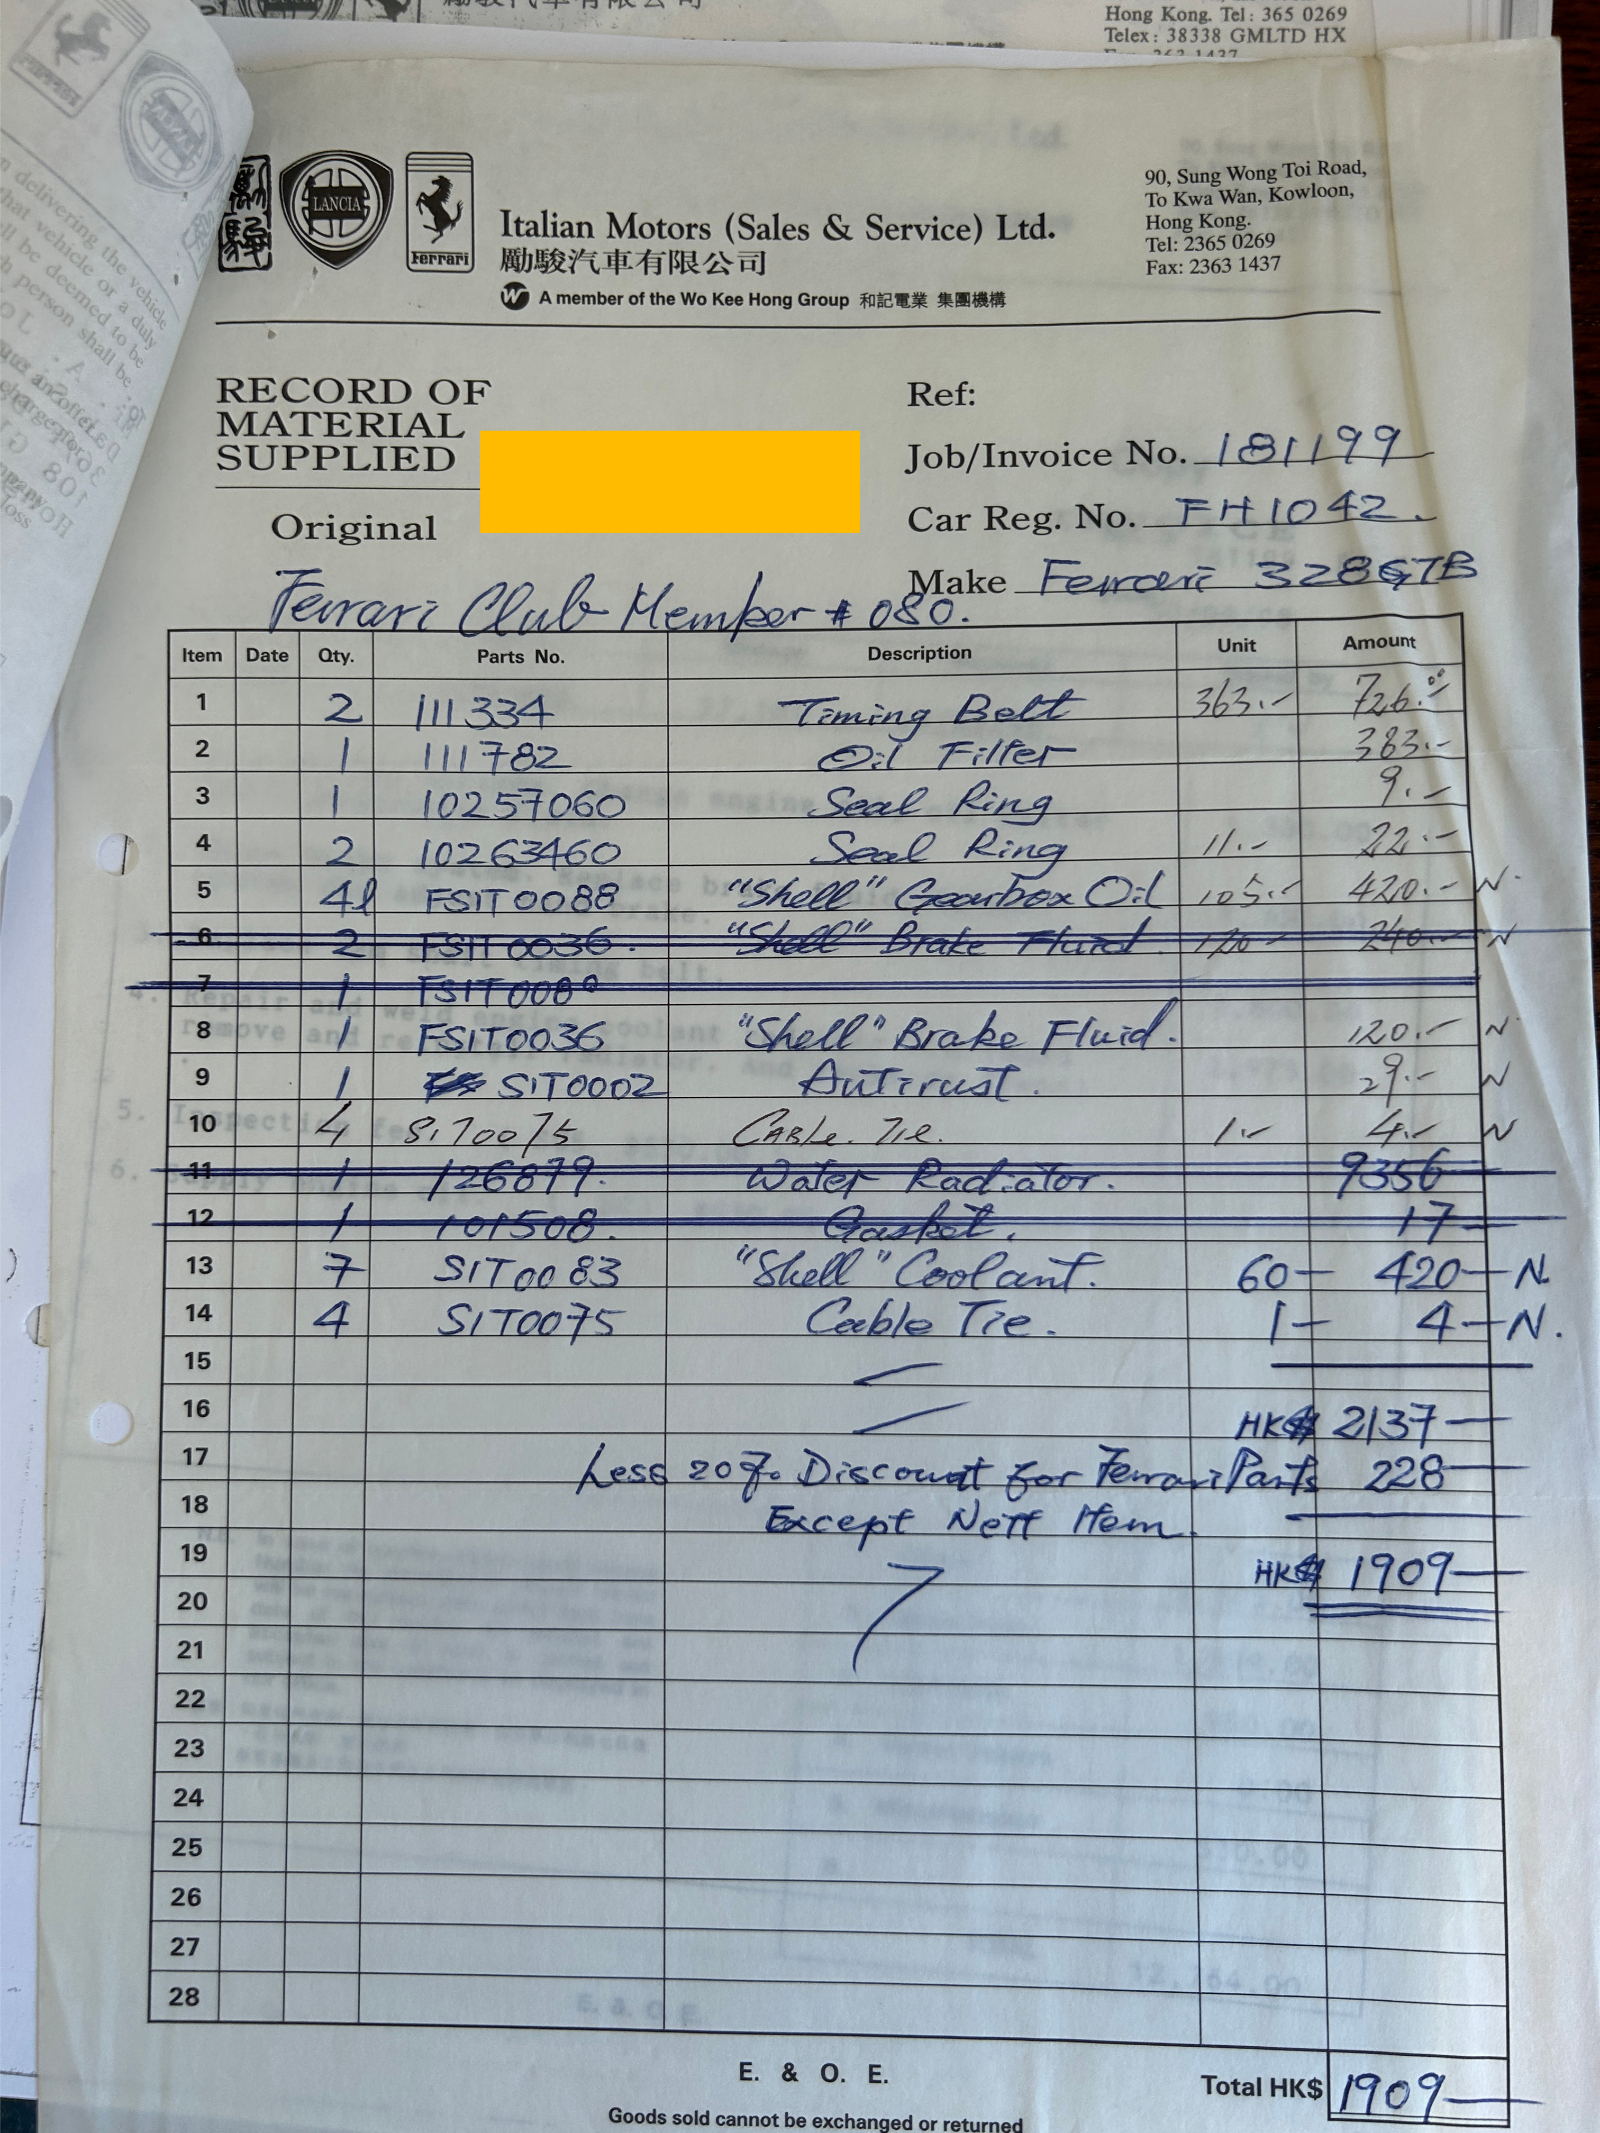 Hong Kong. Tel: 365 0269
Telex: 38338 GMLTD HX
LANCIA
Ferrari
Italian Motors (Sales & Service) Ltd.
勵駿汽車有限公司
A member of the Wo Kee Hong Group 和記電業 集團機構
90, Sung Wong Toi Road,
To Kwa Wan, Kowloon,
Hong Kong.
Tel: 2365 0269
Fax: 2363 1437
RECORD OF
MATERIAL
SUPPLIED
Original
Ref:
Job/Invoice No. 181199
Car Reg. No. FH1042.
Make Ferrari 328GTB
Ferrari Club Member # 080.
Item Date Qty. Parts No. Description Unit Amount
1 2 111334 Timing Belt 363.- 726.00
2 1 111782 Oil Filter 383.-
3 1 10257060 Seal Ring 9.-
4 2 10263460 Seal Ring 11.- 22.-
5 4l FSIT0088 "Shell" Gearbox Oil 105.- 420.- N.
6 2 FSIT0036. "Shell" Brake Fluid. 120- 240.- N
7 1
8 1 FSIT0036 "Shell" Brake Fluid. 120.- N
9 1 SIT0002 Antirust. 29.- N
10 4 SIT0075 CABLE. TIE. 1.- 4.- N
11 1 126879. Water Radiator. 9356
12 1 101508. Gasket. 17-
13 7 SIT0083 "Shell" Coolant. 60- 420- N.
14 4 SIT0075 Cable Tie. 1- 4- N.
15
16 HK$ 2137-
17 Less 20% Discount for Ferrari Parts 228-
18 Except Nett Item.
19 HK$ 1909-
20
21
22
23
24
25
26
27
28
E. & O. E.
Total HK$ 1909-
Goods sold cannot be exchanged or returned